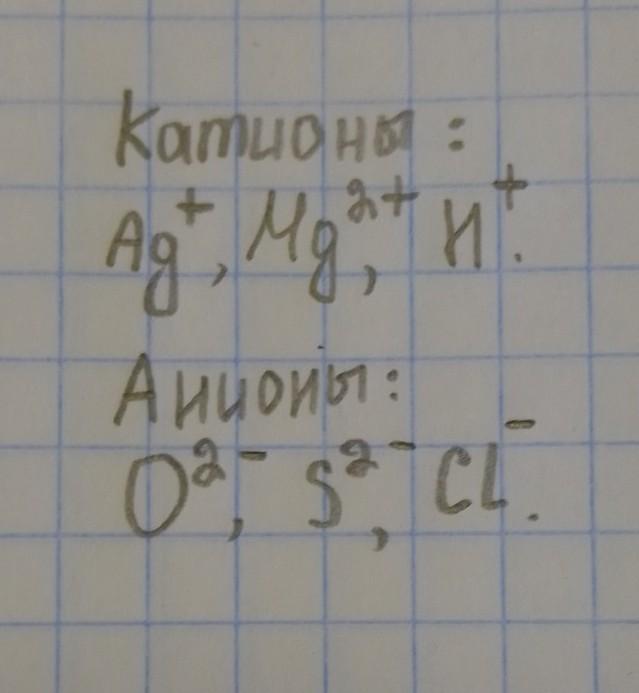 Катионы:
Ag⁺, Mg²⁺, H⁺.
Анионы:
O²⁻, S²⁻, Cl⁻.